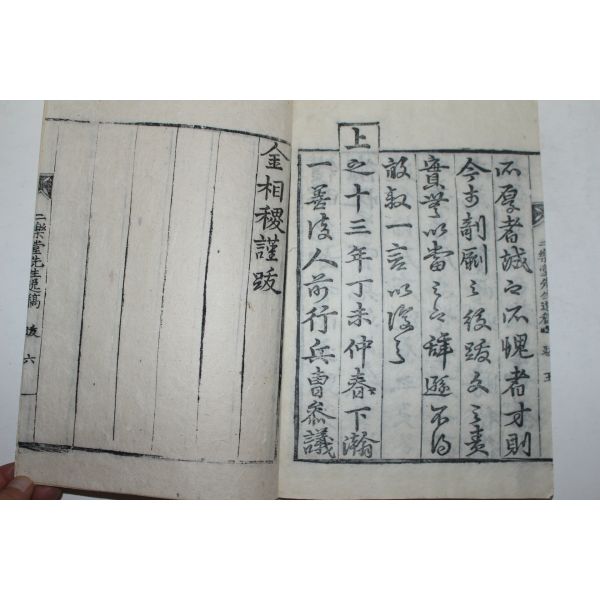 所厚者誠也所愧者才則
今於剞劂之役跋文之責
實無以當之也辭遜不得
敢敍一言以復之
上
之十三年丁未仲春下瀚
一善後人前行兵曹參議
金相稷謹跋
二樂堂先生逸稿 跋 五
二樂堂先生逸稿 跋 六